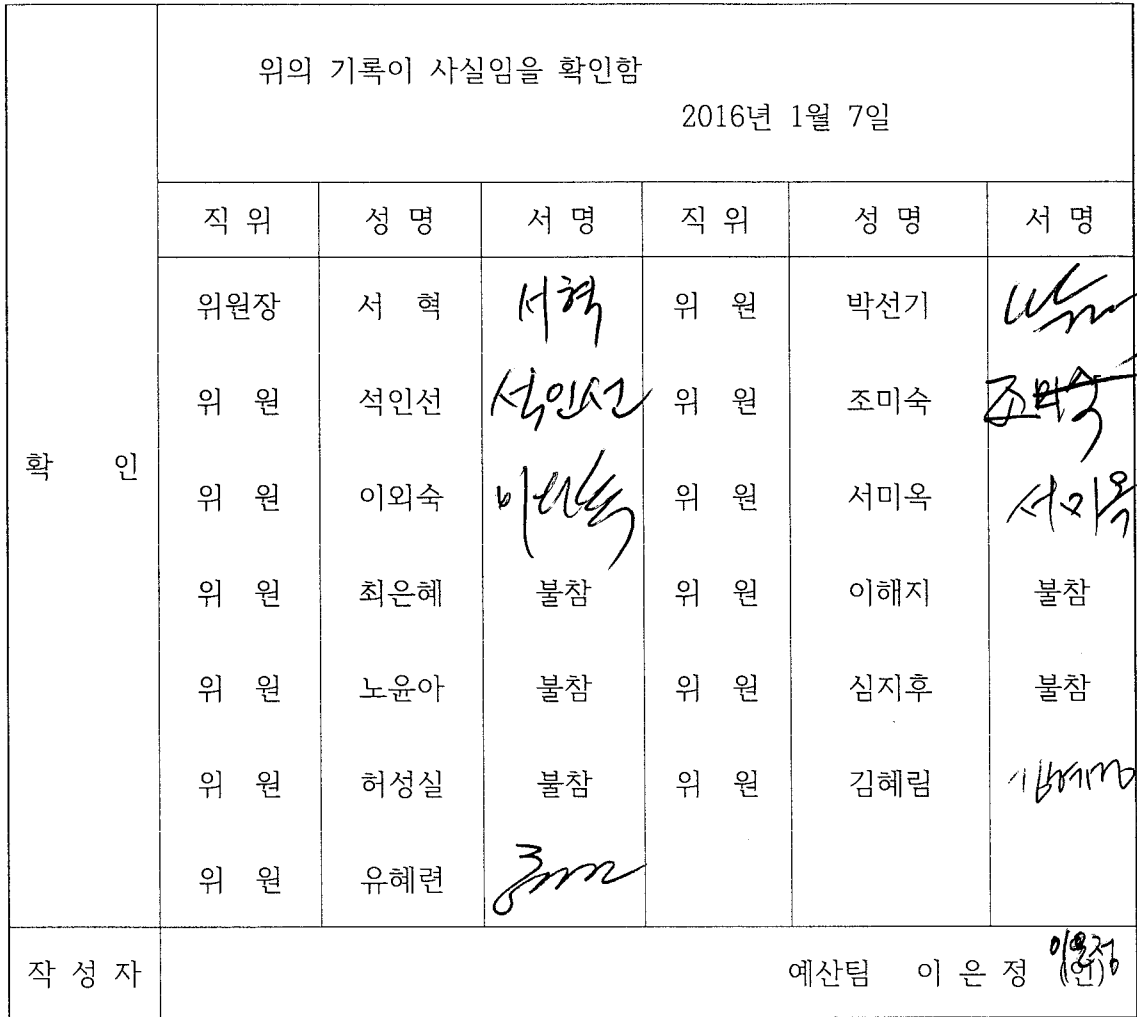 위의 기록이 사실임을 확인함
2016년 1월 7일
직 위 성 명 서 명 직 위 성 명 서 명
위원장 서 혁 서혁 위 원 박선기
위 원 석인선 석인선 위 원 조미숙 조미숙
확 인
위 원 이외숙 이외숙 위 원 서미옥 서미옥
위 원 최은혜 불참 위 원 이해지 불참
위 원 노윤아 불참 위 원 심지후 불참
위 원 허성실 불참 위 원 김혜림
위 원 유혜련
작 성 자 예산팀 이 은 정 (인) 이은정